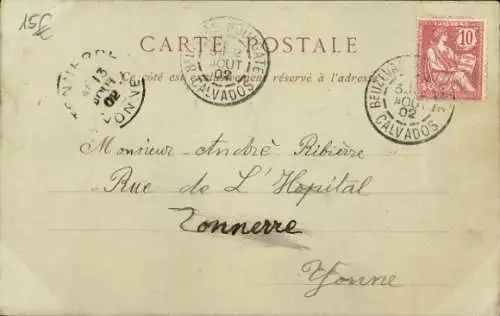 15€
CARTE POSTALE
Ce côté est exclusivement réservé à l'adresse
10
TONNERRE
13
AOUT
02
YONNE
BEUZEVAL-HOULGATE
AOUT
02
CALVADOS
BEUZEVAL
AOUT
02
CALVADOS
Monsieur André Ribière
Rue de L'Hopital
Tonnerre
Yonne